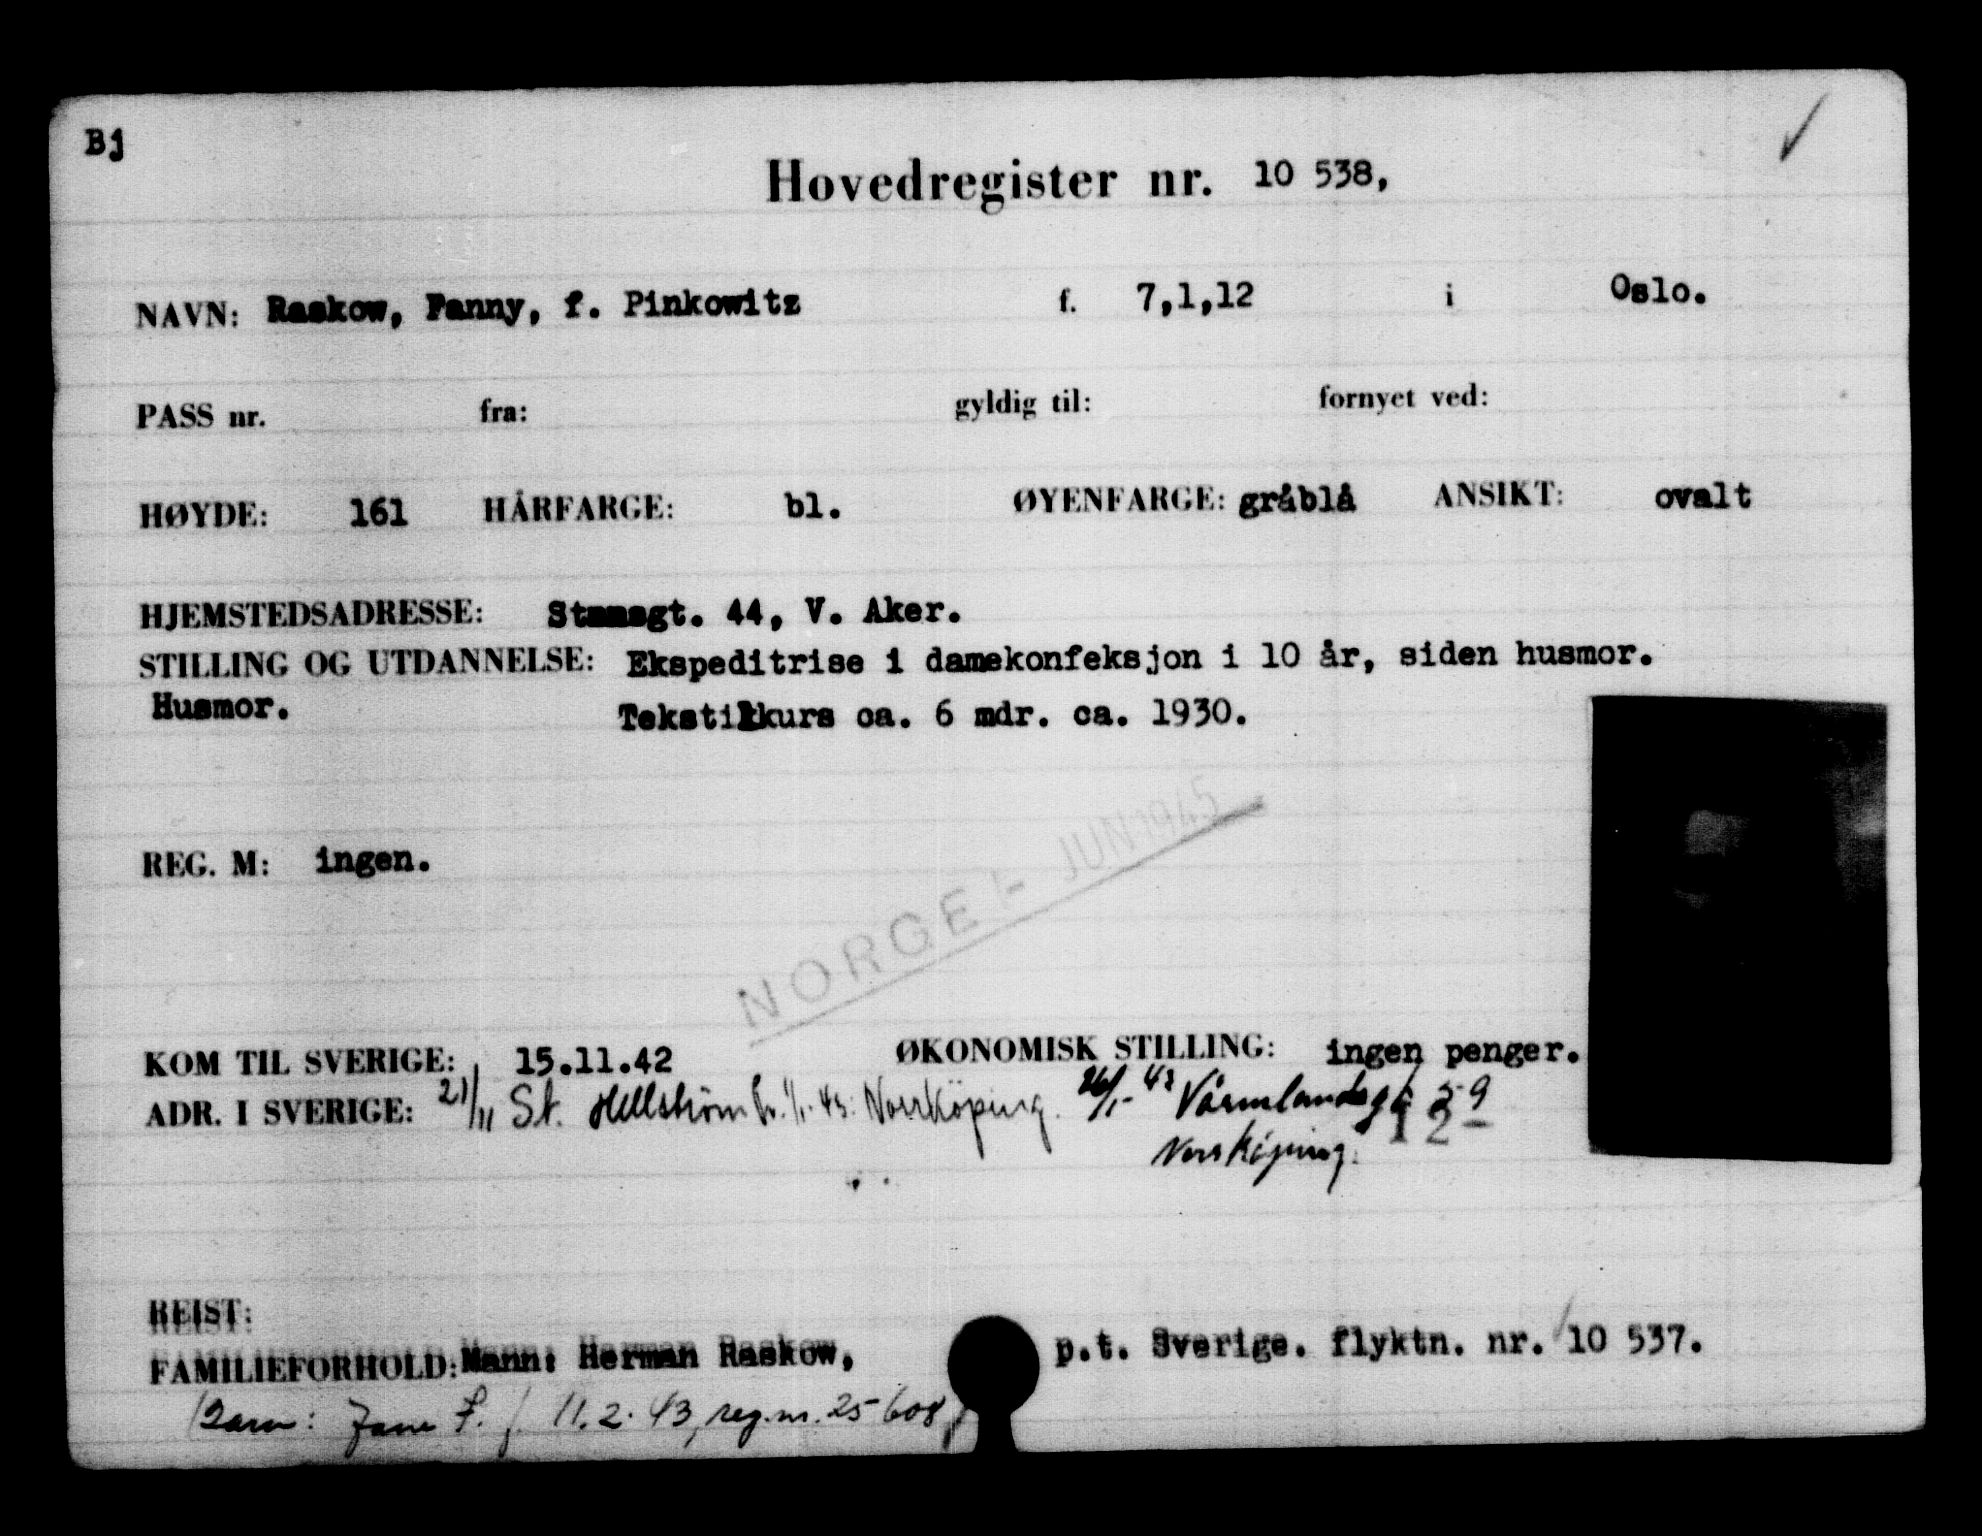 Bj
Hovedregister nr. 10 538,
NAVN: Raskow, Fanny, f. Pinkowitz f. 7,1,12 i Oslo.
PASS nr. fra: gyldig til: fornyet ved:
HØYDE: 161 HÅRFARGE: bl. ØYENFARGE: gråblå ANSIKT: ovalt
HJEMSTEDSADRESSE: gt. 44, V. Aker.
STILLING OG UTDANNELSE: Ekspeditrise i damekonfeksjon i 10 år, siden husmor.
Husmor. Tekstilkurs ca. 6 mdr. ca. 1930.
NORGE - JUN 1945
REG. M: ingen.
KOM TIL SVERIGE: 15.11.42 ØKONOMISK STILLING: ingen penger.
ADR. I SVERIGE: 21/11 St. Hellström 1/1-43: Norrköping. 26/1-43 Värmlandsg 59
12
Norrköping.
REIST:
FAMILIEFORHOLD: Mann: Herman Raskow, p.t. Sverige. flyktn. nr. 10 537.
Barn: Jane F. f. 11.2.43, reg.nr. 25 608